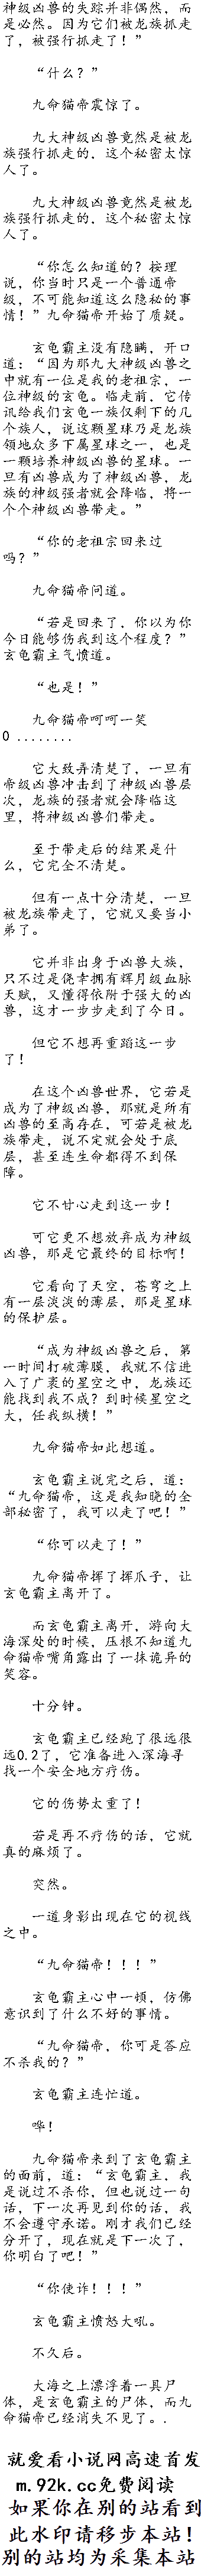 神级凶兽的失踪并非偶然，而
是必然。因为它们被龙族抓走
了，被强行抓走了！”
“什么？”
九命猫帝震惊了。
九大神级凶兽竟然是被龙
族强行抓走的，这个秘密太惊
人了。
九大神级凶兽竟然是被龙
族强行抓走的，这个秘密太惊
人了。
“你怎么知道的？按理
说，你当时只是一个普通帝
级，不可能知道这么隐秘的事
情！”九命猫帝开始了质疑。
玄龟霸主没有隐瞒，开口
道：“因为那九大神级凶兽之
中就有一位是我的老祖宗，一
位神级的玄龟。临走前，它传
讯给我们玄龟一族仅剩下的几
个族人，说这颗星球乃是龙族
领地众多下属星球之一，也是
一颗培养神级凶兽的星球。一
旦有凶兽成为了神级凶兽，龙
族的神级强者就会降临，将一
个个神级凶兽带走。”
“你的老祖宗回来过
吗？”
九命猫帝问道。
“若是回来了，你以为你
今日能够伤我到这个程度？”
玄龟霸主气愤道。
“也是！”
九命猫帝呵呵一笑
0 ........
它大致弄清楚了，一旦有
帝级凶兽冲击到了神级凶兽层
次，龙族的强者就会降临这
里，将神级凶兽们带走。
至于带走后的结果是什
么，它完全不清楚。
但有一点十分清楚，一旦
被龙族带走了，它就又要当小
弟了。
它并非出身于凶兽大族，
只不过是侥幸拥有辉月级血脉
天赋，又懂得依附于强大的凶
兽，这才一步步走到了今日。
但它不想再重蹈这一步
了！
在这个凶兽世界，它若是
成为了神级凶兽，那就是所有
凶兽的至高存在，可若是被龙
族带走，说不定就会处于底
层，甚至连生命都得不到保
障。
它不甘心走到这一步！
可它更不想放弃成为神级
凶兽，那是它最终的目标啊！
它看向了天空，苍穹之上
有一层淡淡的薄层，那是星球
的保护层。
“成为神级凶兽之后，第
一时间打破薄膜，我就不信进
入了广袤的星空之中，龙族还
能找到我不成？到时候星空之
大，任我纵横！”
九命猫帝如此想道。
玄龟霸主说完之后，道：
“九命猫帝，这是我知晓的全
部秘密了，我可以走了吧！”
“你可以走了！”
九命猫帝挥了挥爪子，让
玄龟霸主离开了。
而玄龟霸主离开，游向大
海深处的时候，压根不知道九
命猫帝嘴角露出了一抹诡异的
笑容。
十分钟。
玄龟霸主已经跑了很远很
远0.2了，它准备进入深海寻
找一个安全地方疗伤。
它的伤势太重了！
若是再不疗伤的话，它就
真的麻烦了。
突然。
一道身影出现在它的视线
之中。
“九命猫帝！！！”
玄龟霸主心中一顿，仿佛
意识到了什么不好的事情。
“九命猫帝，你可是答应
不杀我的？”
玄龟霸主连忙道。
哗！
九命猫帝来到了玄龟霸主
的面前，道：“玄龟霸主，我
是说过不杀你，但也说过一句
话，下一次再见到你的话，我
不会遵守承诺。刚才我们已经
分开了，现在就是下一次了，
你明白了吧！”
“你使诈！！！”
玄龟霸主愤怒大吼。
不久后。
大海之上漂浮着一具尸
体，是玄龟霸主的尸体，而九
命猫帝已经消失不见了。.
就爱看小说网高速首发
m.92k.cc免费阅读
如果你在别的站看到
此水印请移步本站！
别的站均为采集本站